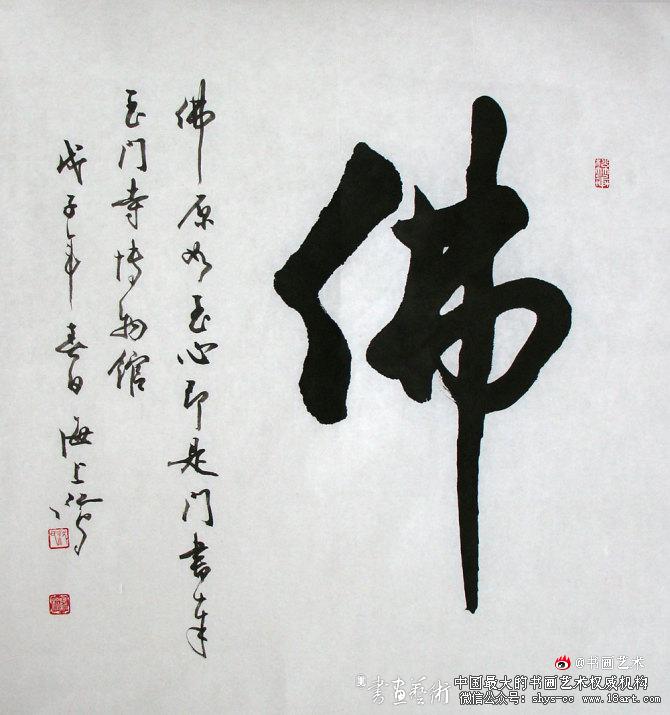 佛
佛原如玉心即是门书奉
玉门寺博物馆
戊子年春日海上
@书画艺术
書画藝術
中国最大的书画艺术权威机构
微信公众号：shys-cc www.18art.com